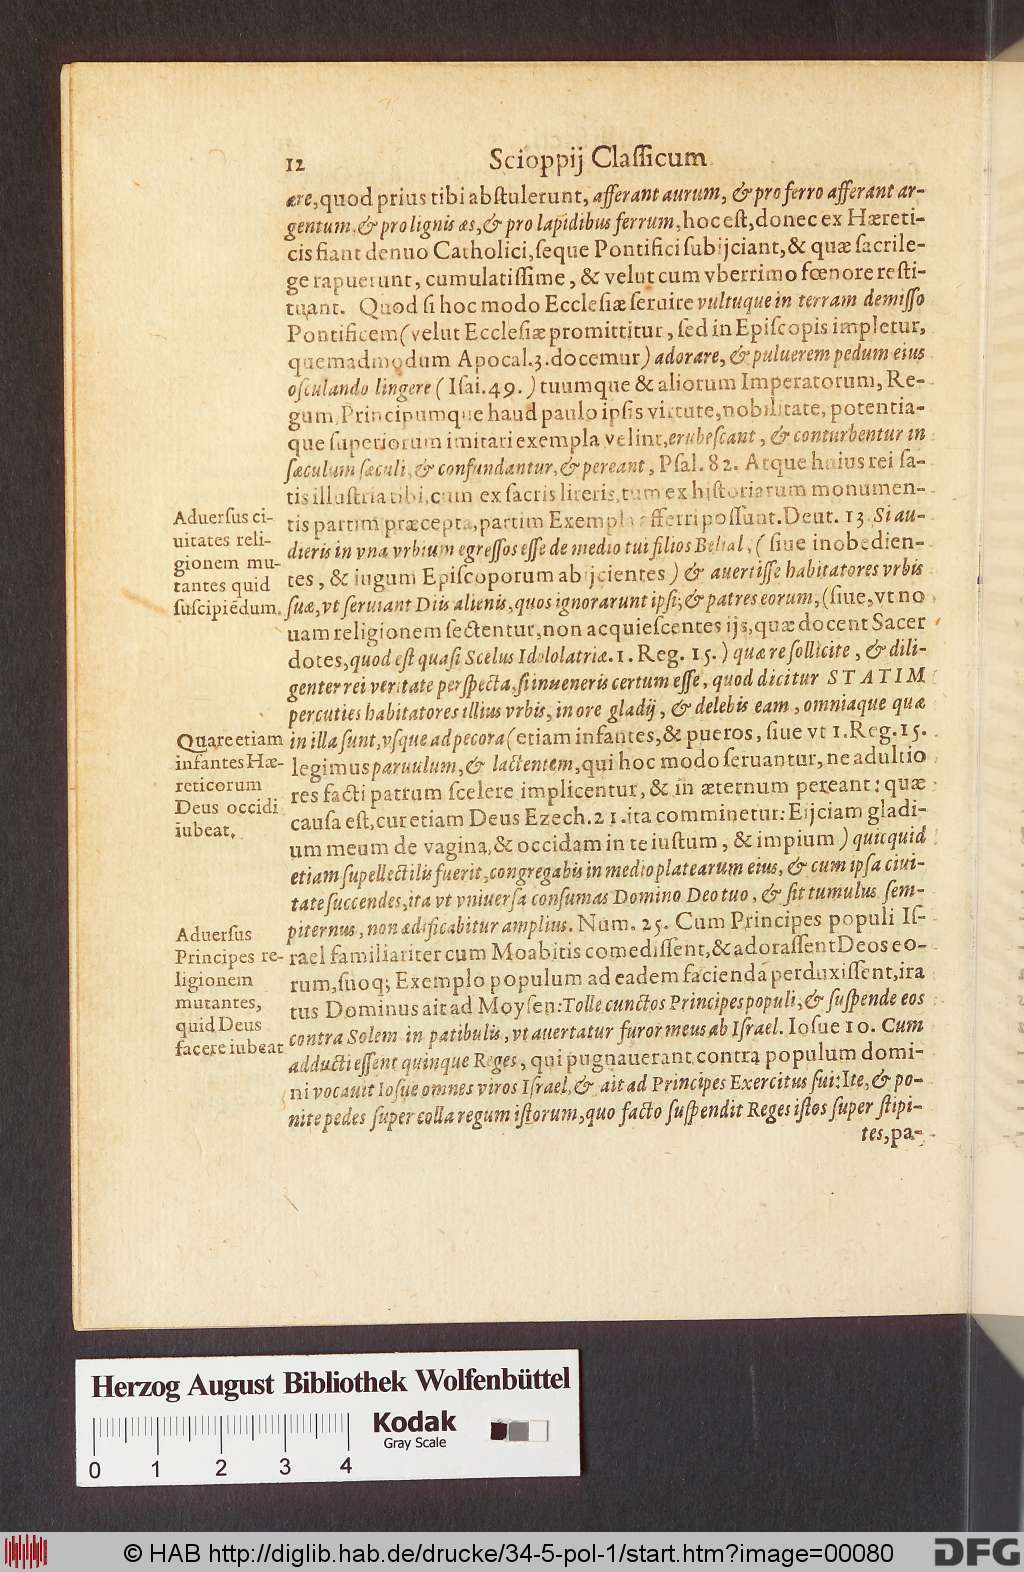 12 Scioppij Classicum
ære, quod prius tibi abstulerunt, afferant aurum, & pro ferro afferant ar-
gentum, & pro lignis æs, & pro lapidibus ferrum, hoc est, donec ex Hæreti-
cis fiant denuo Catholici, seque Pontifici subijciant, & quæ sacrile-
ge rapuerunt, cumulatissime, & velut cum vberrimo fœnore resti-
tuant. Quod si hoc modo Ecclesiæ seruire vultuque in terram demisso
Pontificem (velut Ecclesiæ promittitur, sed in Episcopis impletur,
quemadmodum Apocal. 3. docemur) adorare, & puluerem pedum eius
osculando lingere (Isai. 49.) tuumque & aliorum Imperatorum, Re-
gum, Principumque haud paulo ipsis virtute, nobilitate, potentia-
que superiorum imitari exempla velint, erubescant, & conturbentur in
sæculum sæculi, & confundantur, & pereant, Psal. 82. Atque huius rei sa-
tis illustria tibi, cum ex sacris literis, tum ex historiarum monumen-
Aduersus ci-
uitates reli-
gionem mu-
tantes quid
suscipiēdum.
tis partim præcepta, partim Exempla afferri possunt. Deut. 13. Si au-
dieris in vna vrbium egressos esse de medio tui filios Belial, (siue inobedien-
tes, & iugum Episcoporum abijcientes) & auertisse habitatores vrbis
suæ, vt seruiant Diis alienis, quos ignorarunt ipsi; & patres eorum, (siue, vt no
uam religionem sectentur, non acquiescentes ijs, quæ docent Sacer
dotes, quod est quasi Scelus Idololatriæ. 1. Reg. 15.) quære sollicite, & dili-
genter rei veritate perspecta, si inueneris certum esse, quod dicitur STATIM
percuties habitatores illius vrbis, in ore gladij, & delebis eam, omniaque quæ
Quare etiam
infantes Hæ-
reticorum
Deus occidi
iubeat.
in illa sunt, vsque ad pecora (etiam infantes, & pueros, siue vt 1. Reg. 15.
legimus paruulum, & lactentem, qui hoc modo seruantur, ne adultio
res facti patrum scelere implicentur, & in æternum pereant: quæ
causa est, cur etiam Deus Ezech. 21. ita comminetur: Eijciam gladi-
um meum de vagina, & occidam in te iustum, & impium) quicquid
etiam supellectilis fuerit, congregabis in medio platearum eius, & cum ipsa ciui-
tate succendes, ita vt vniuersa consumas Domino Deo tuo, & sit tumulus sem-
piternus, non ædificabitur amplius. Num. 25. Cum Principes populi Is-
Aduersus
Principes re-
ligionem
mutantes,
quid Deus
facere iubeat
rael familiariter cum Moabitis comedissent, & adorassent Deos eo-
rum, suoq; Exemplo populum ad eadem facienda perduxissent, ira
tus Dominus ait ad Moysen: Tolle cunctos Principes populi, & suspende eos
contra Solem in patibulis, vt auertatur furor meus ab Israel. Iosue 10. Cum
adducti essent quinque Reges, qui pugnauerant contra populum domi-
ni vocauit Iosue omnes viros Israel, & ait ad Principes Exercitus sui: Ite, & po-
nite pedes super colla regum istorum, quo facto suspendit Reges istos super stipi-
tes, pa-
Herzog August Bibliothek Wolfenbüttel
Kodak
Gray Scale
0 1 2 3 4
© HAB http://diglib.hab.de/drucke/34-5-pol-1/start.htm?image=00080
DFG